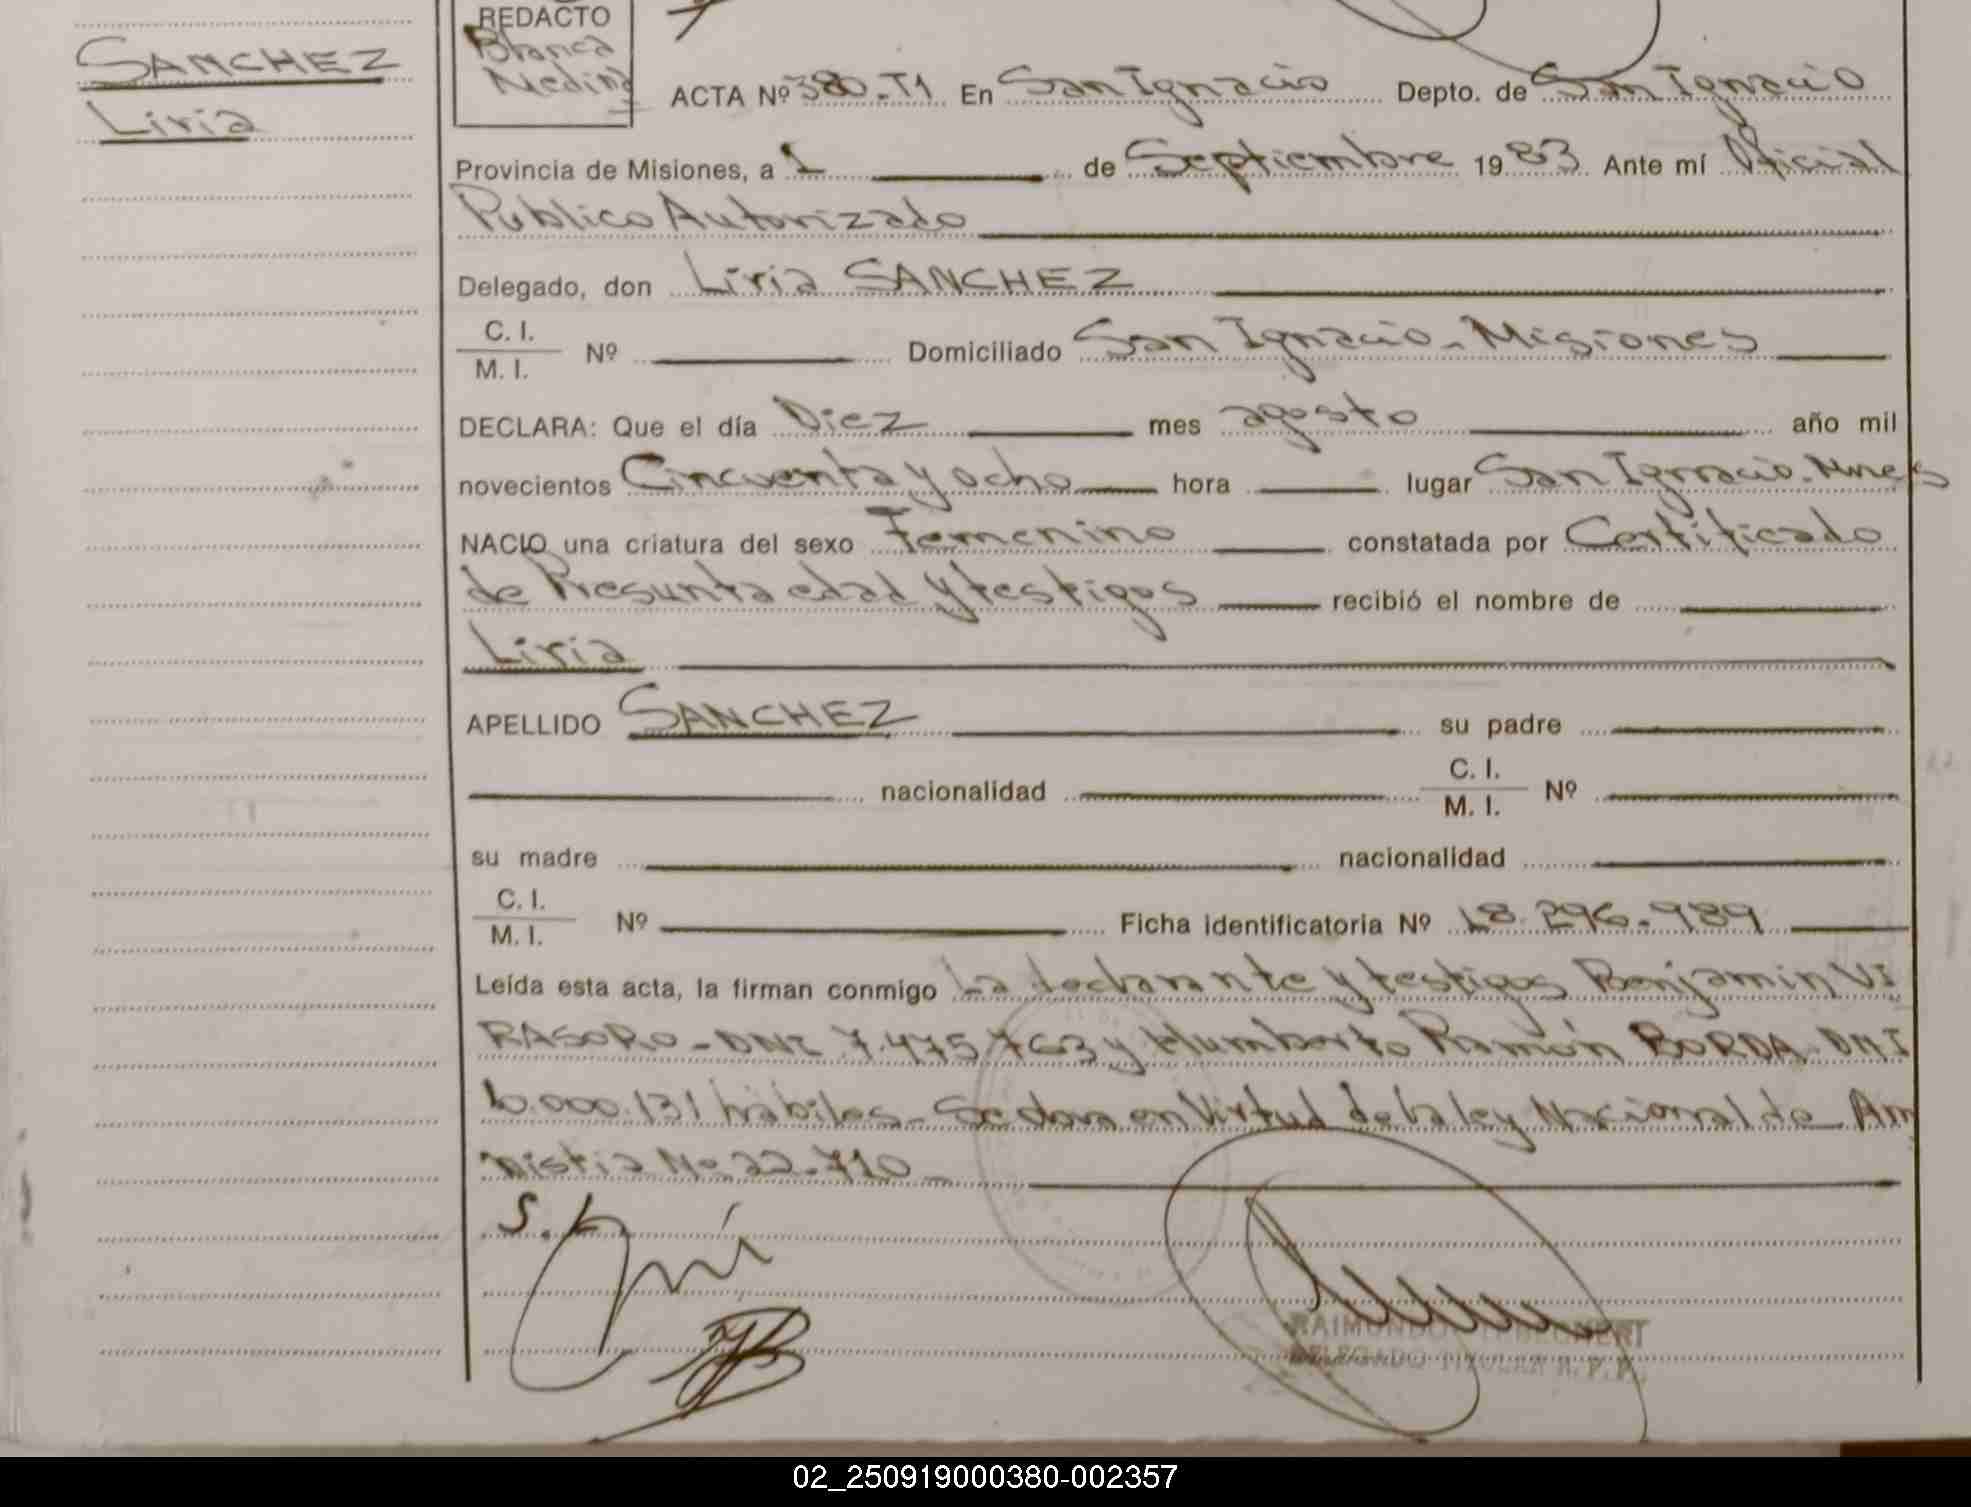 SANCHEZ
Liria
REDACTO
Blanca
Medina
ACTA Nº 380-T1 En San Ignacio Depto. de San Ignacio
Provincia de Misiones, a 1 de Septiembre 1983. Ante mí Oficial
Publico Autorizado
Delegado, don Liria SANCHEZ
C. I.
M. I. Nº Domiciliado San Ignacio - Misiones
DECLARA: Que el día Diez mes agosto año mil
novecientos Cincuenta y ocho hora lugar San Ignacio. Mnes
NACIO una criatura del sexo Femenino constatada por Certificado
de Presunta edad y testigos recibió el nombre de
Liria
APELLIDO SANCHEZ su padre
nacionalidad C. I.
M. I. Nº
su madre nacionalidad
C. I.
M. I. Nº Ficha identificatoria Nº 18.296.989
Leída esta acta, la firman conmigo La declarante y testigos Benjamin VI
RASORO - DNI 7.475.763 y Humberto Ramón BORDA DNI
10.000.131 hábiles - Se labra en Virtud de la ley Nacional de Am
nistia Nº 22.710
S. L
RAIMUNDO
DELEGADO TITULAR R. P. P.
02_250919000380-002357